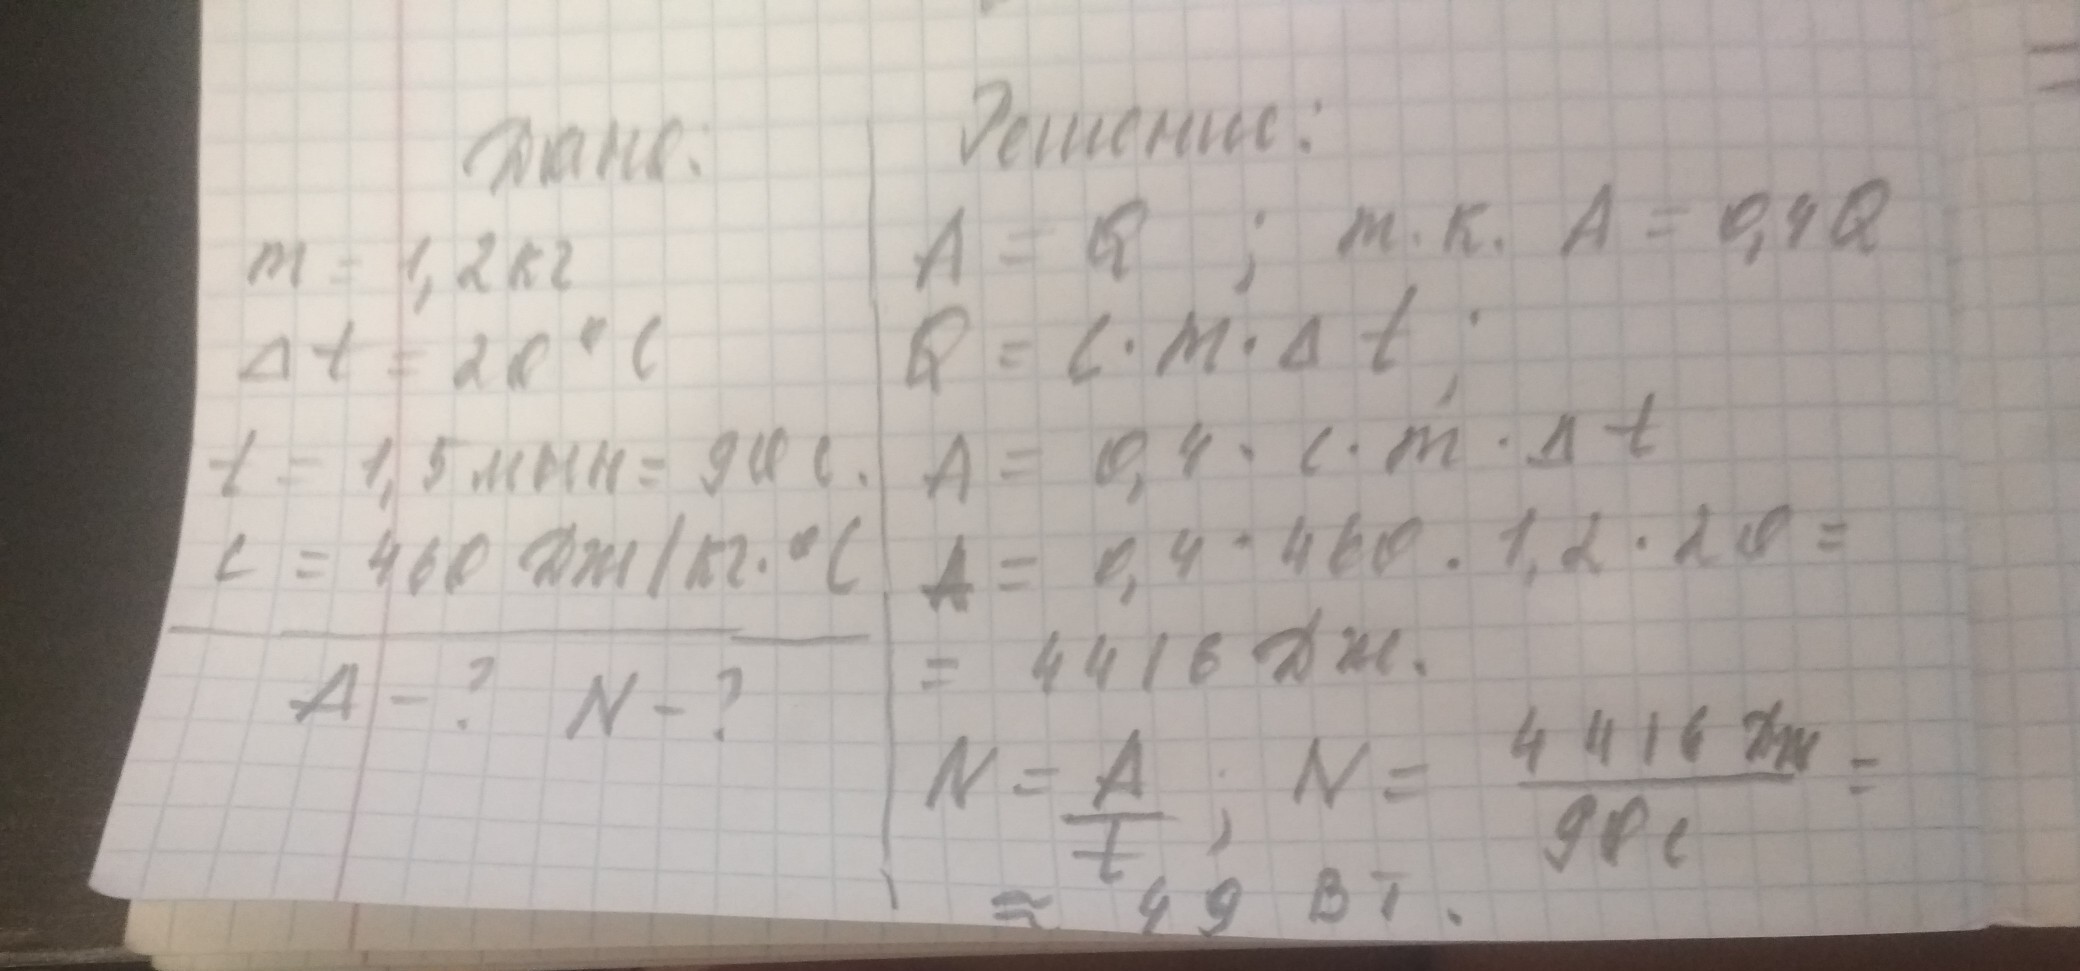 Дано:
m = 1,2 кг
Δt = 20 °C
t = 1,5 мин = 90 с.
c = 460 Дж/кг·°C
A - ? N - ?
Решение:
A = Q ; т.к. A = 0,4Q
Q = c·m·Δt ;
A = 0,4·c·m·Δt
A = 0,4·460·1,2·20 =
= 4416 Дж.
N = A/t ; N = 4416 Дж/90 с =
≈ 49 Вт.